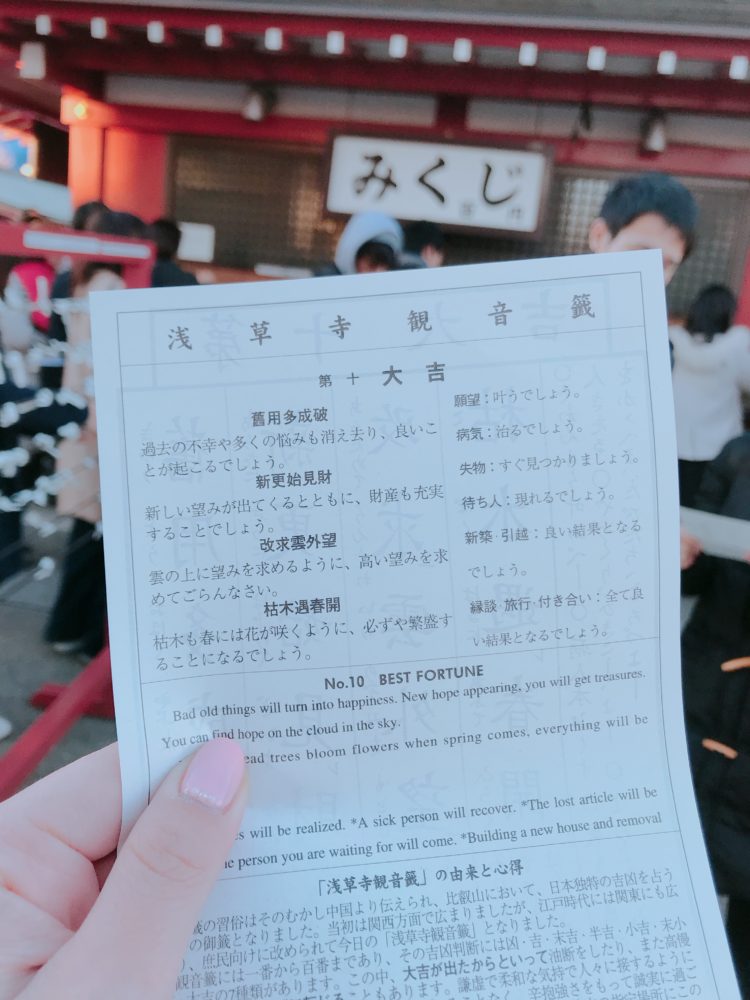 みくじ
浅草寺観音籤
第十 大吉
舊用多成破
過去の不幸や多くの悩みも消え去り、良いこ
とが起こるでしょう。
新更始見財
新しい望みが出てくるとともに、財産も充実
することでしょう。
改求雲外望
雲の上に望みを求めるように、高い望みを求
めてごらんなさい。
枯木遇春開
枯木も春には花が咲くように、必ずや繁盛す
ることになるでしょう。
願望：叶うでしょう。
病気：治るでしょう。
失物：すぐ見つかりましょう。
待ち人：現れるでしょう。
新築・引越：良い結果となる
でしょう。
縁談・旅行・付き合い：全て良
い結果となるでしょう。
No.10 BEST FORTUNE
Bad old things will turn into happiness. New hope appearing, you will get treasures.
You can find hope on the cloud in the sky.
trees bloom flowers when spring comes, everything will be
will be realized. *A sick person will recover. *The lost article will be
person you are waiting for will come. *Building a new house and removal
「浅草寺観音籤」の由来と心得
の習俗はそのむかし中国より伝えられ、比叡山において、日本独特の吉凶を占う
の御籤となりました。当初は関西方面で広まりましたが、江戸時代には関東にも広
、庶民向けに改められて今日の「浅草寺観音籤」となりました。
観音籤には一番から百番まであり、その吉凶判断には凶・吉・末吉・半吉・小吉・末小
大吉の7種類があります。この中、大吉が出たからといって油断をしたり、また高慢
こともあります。謙虚で柔和な気持で人々に接するように
辛抱強さをもって誠実に過ご